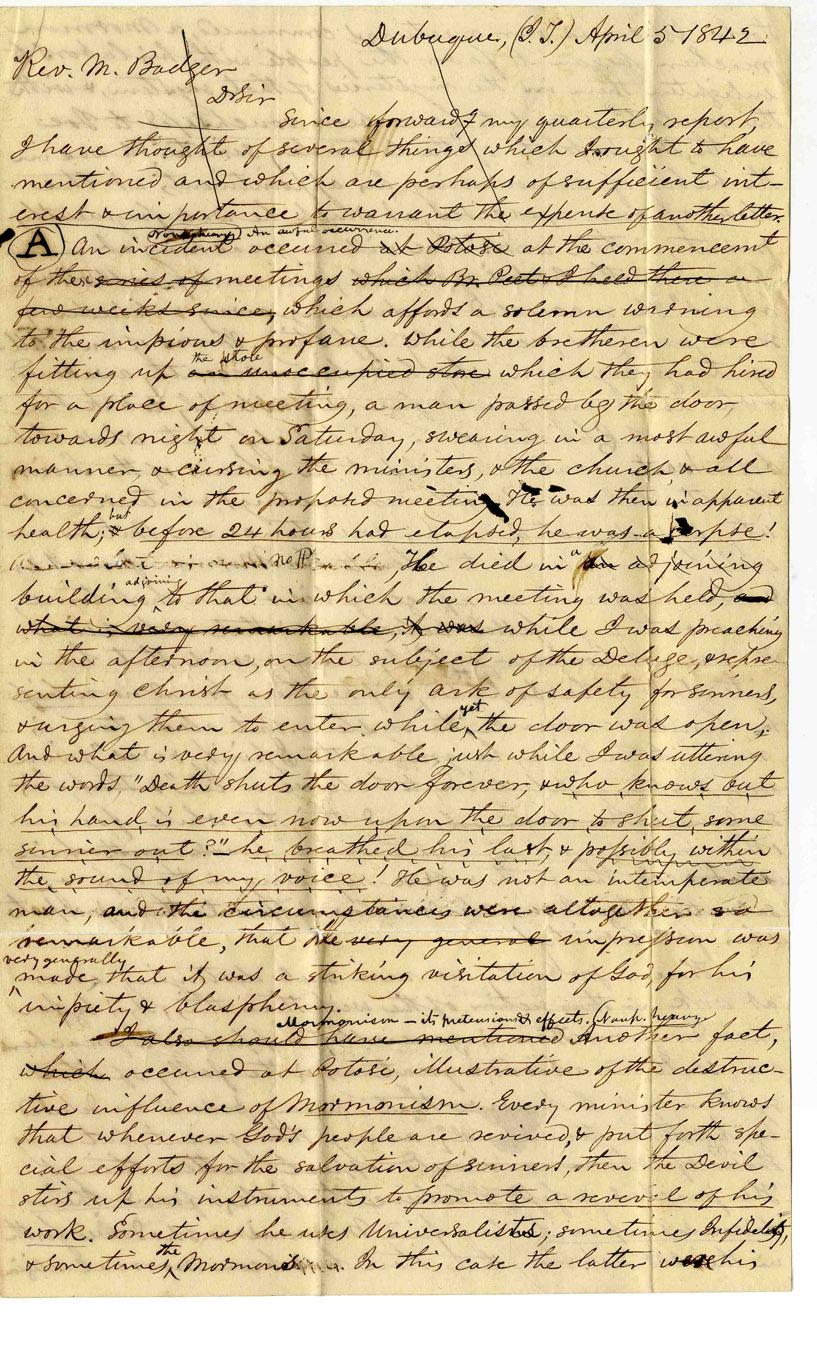 Dubuque, (I. T.) April 5 1842
Rev. M. Badger
D Sir
Since forwardg my quarterly report,
I have thought of several things which I ought to have
mentioned and which are perhaps of sufficient int-
erest & importance to warrant the expense of another letter.
An awful occurrence.
A An incident occurred at Potosi at the commencemt
of the series of meetings which Br. Peet & I held there a
few weeks since, which affords a solemn warning
to the impious & profane. While the bretheren were
the store
fitting up an unoccupied store which they had hired
for a place of meeting, a man passed by the door,
towards night on Saturday, swearing in a most awful
manner, & cursing the ministers, & the church, & all
concerned in the proposed meeting. He was then in apparent
but
health; & before 24 hours had elapsed, he was a corpse!
no P He died in a an adjoining
adjoining
building to that in which the meeting was held, and
what is very remarkable, it was while I was preaching
in the afternoon, on the subject of the Deluge, & repre-
senting Christ as the only ark of safety for sinners,
yet
& urging them to enter while the door was open;
And what is very remarkable just while I was uttering
the words, "Death shuts the door forever, & who knows but
his hand is even now upon the door to shut some
sinner out?" he breathed his last, & possibly within
the sound of my voice! He was not an intemperate
man, and the circumstances were altogether so
remarkable, that the very general impression was
very generally
made, that it was a striking visitation of God, for his
impiety & blasphemy.
Mormonism – its pretensions & effects. (Nonp. heavy
I also should have mentioned Another fact,
which occurred at Potosi, illustrative of the destruc-
tive influence of Mormonism. Every minister knows
that whenever God's people are revived, & put forth spe-
cial efforts for the salvation of sinners, then the Devil
stirs up his instruments to promote a revival of his
work. Sometimes he uses Universalists; sometimes Infidelity,
the
& sometimes Mormonis. In this case the latter were his